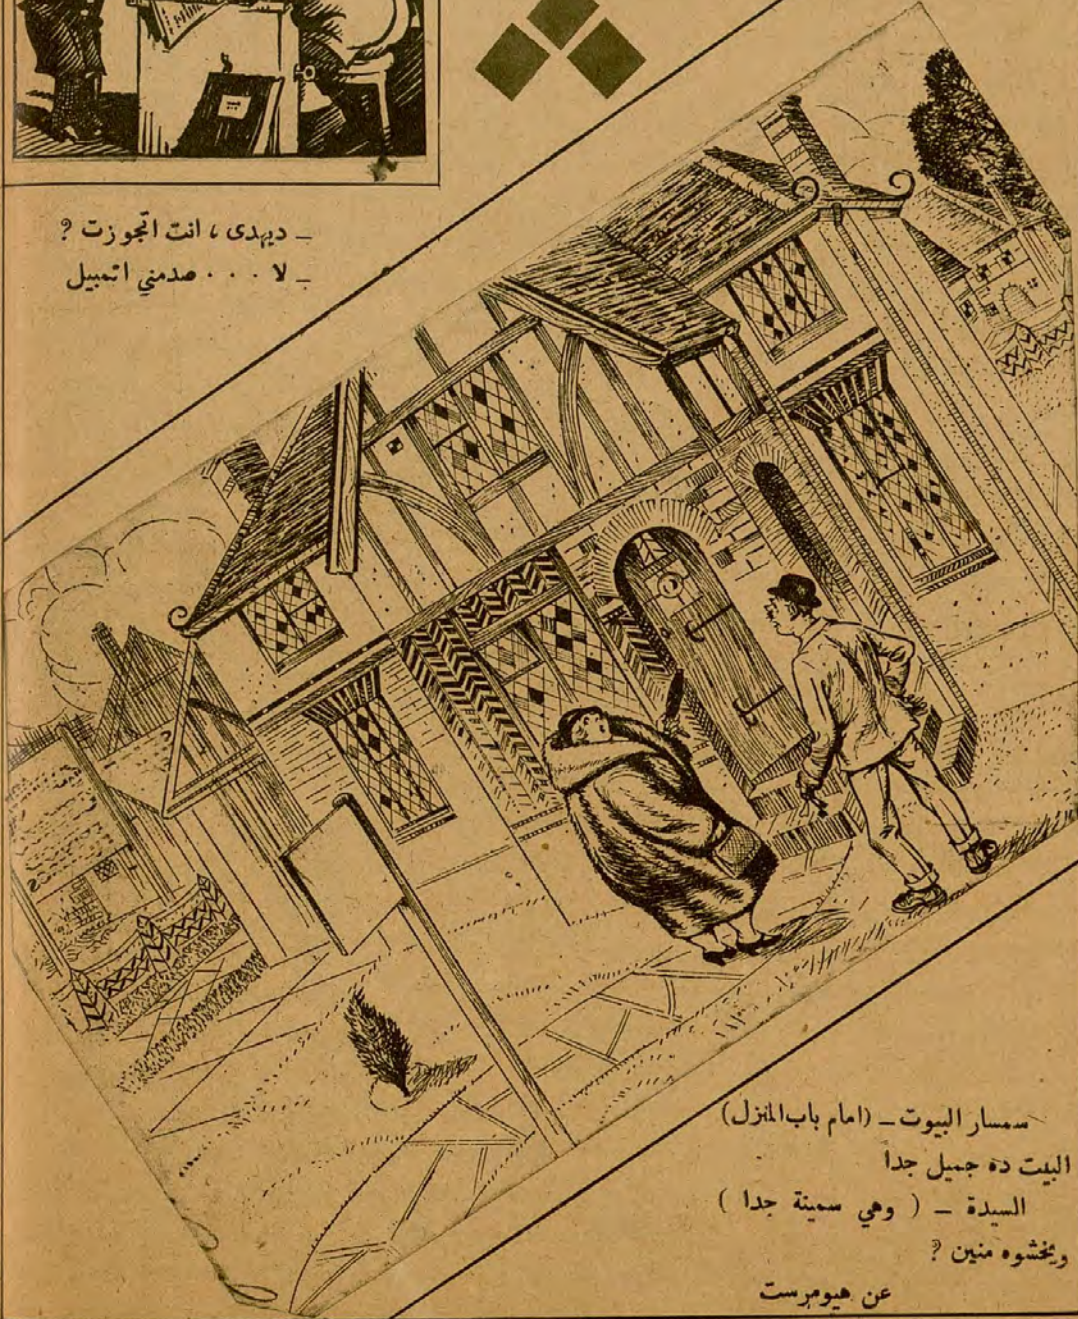 ـ ديهدى ، انت اتجوزت ؟
ـ لا . . . صدمني اتمبيل
سمسار البيوت ـ (امام باب المنزل)
البيت ده جميل جدا
السيدة ـ ( وهي سمينة جدا )
ويخشوه منين ؟
عن هيومرست